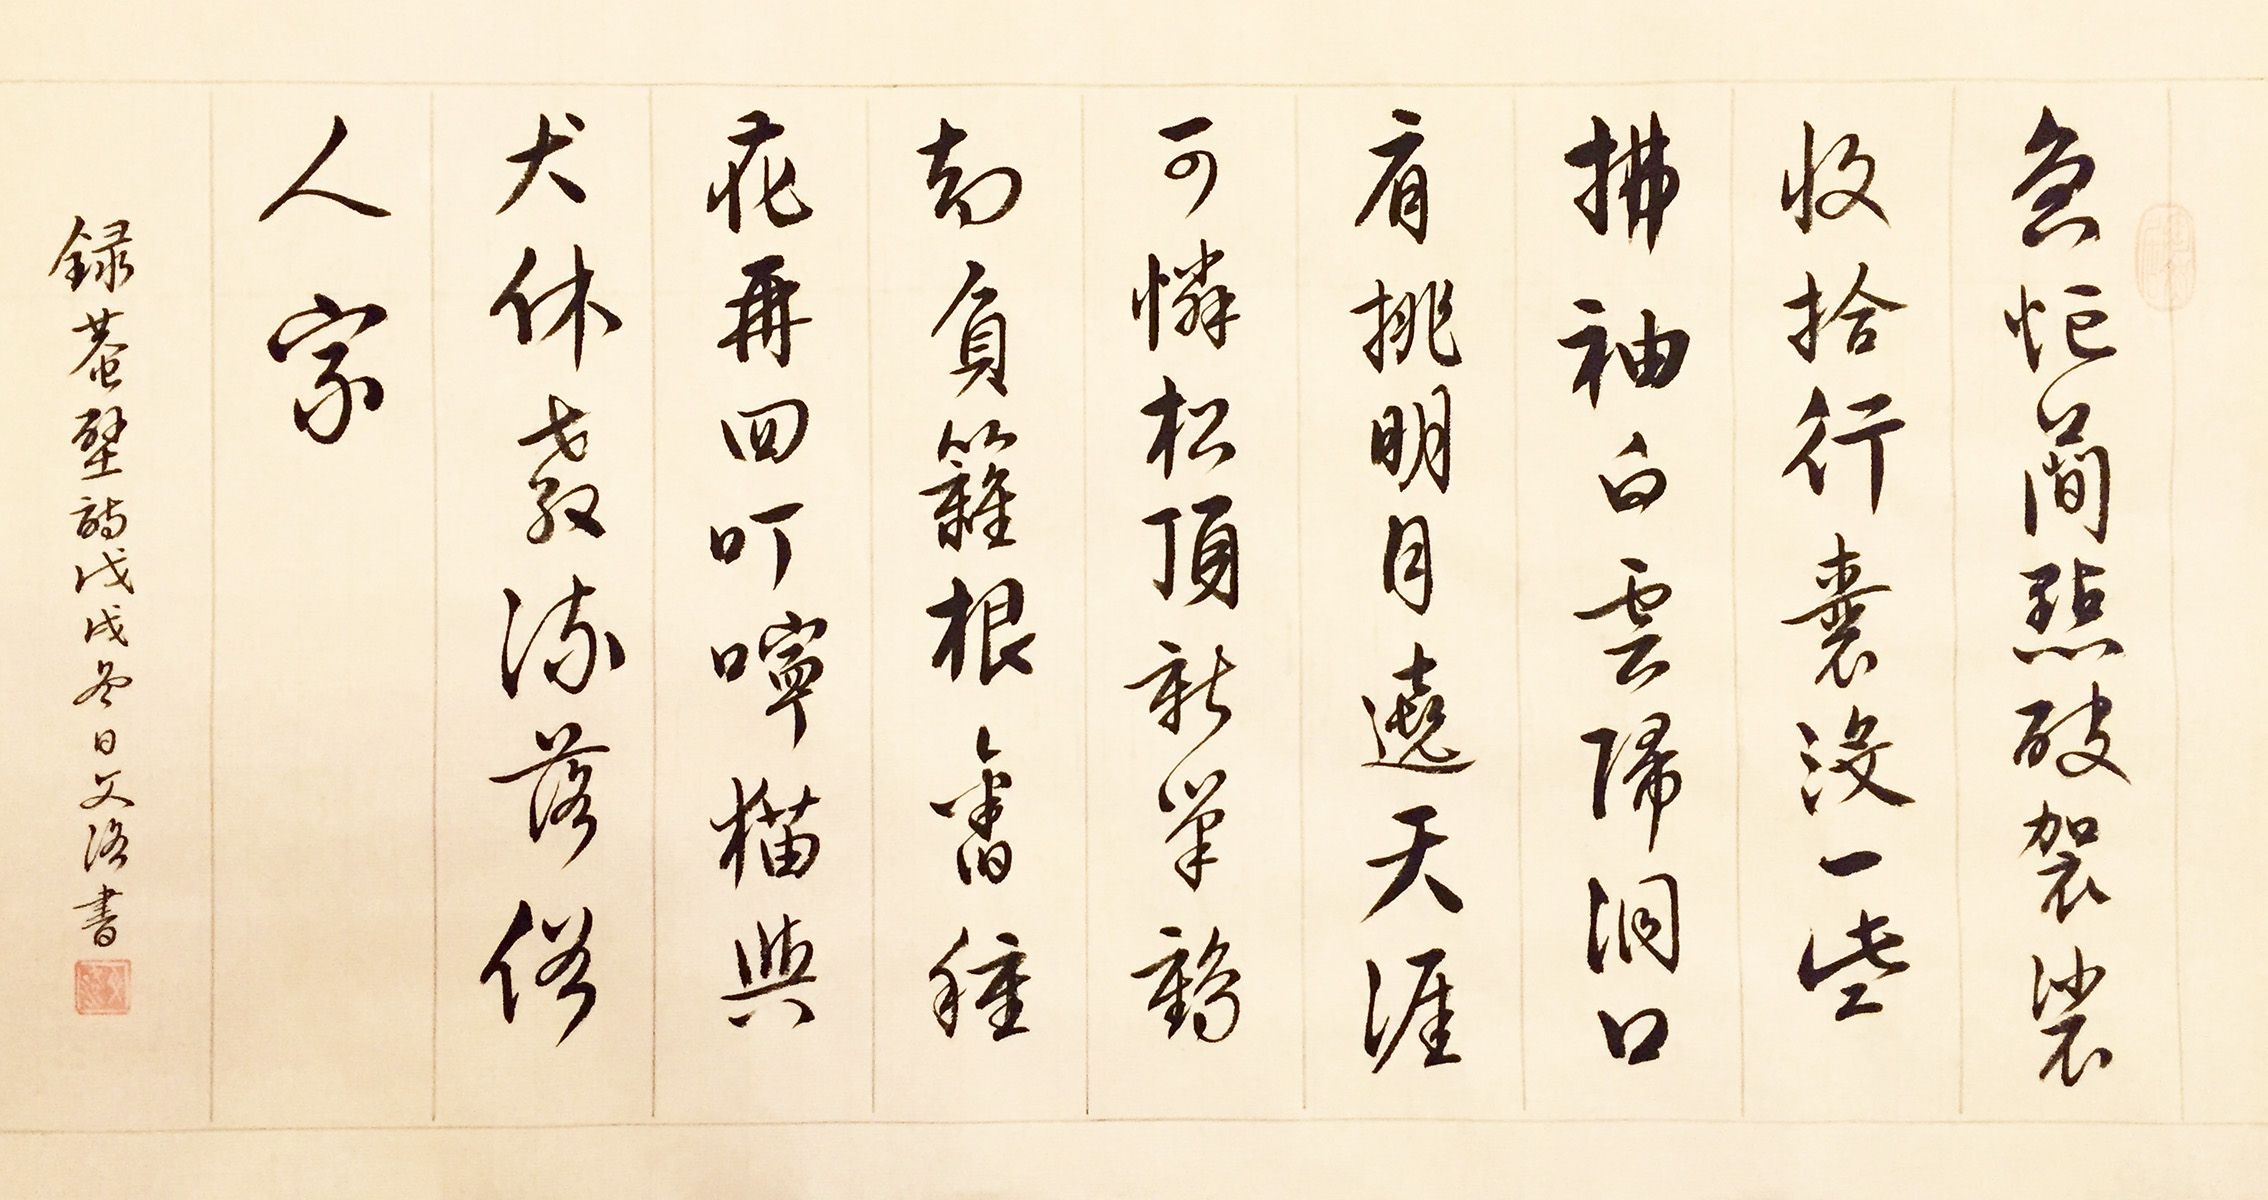 急忙簡點破袈裟
收拾行囊沒一些
拂袖白雲歸洞口
肩挑明月遶天涯
可憐松頂新巢鶴
却負籬根舊種
花再四叮嚀猫與
犬休教流落俗
人家
録菴壁詩戊戌冬日文洛書